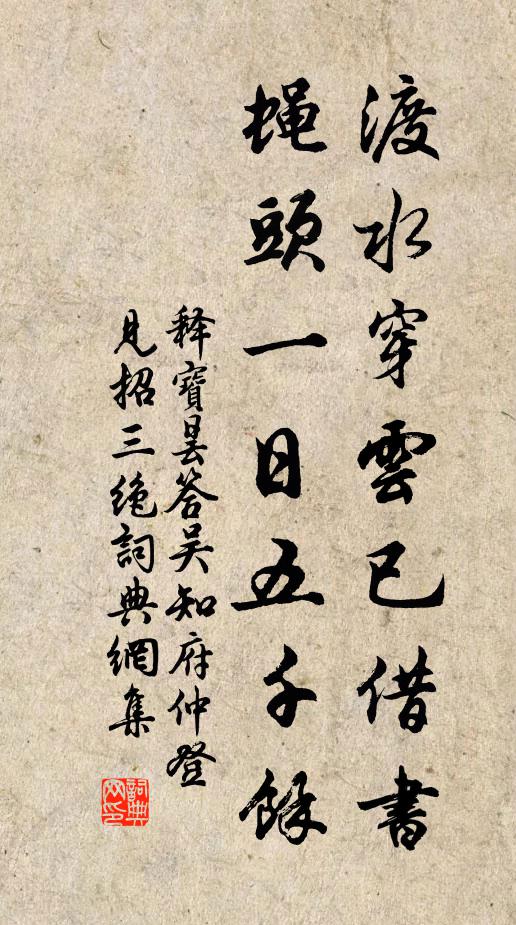 渡水穿雲已借書
蝇頭一日五千餘
释寶曇答吴知府仲登
見招三绝詞典網集
詞典网印